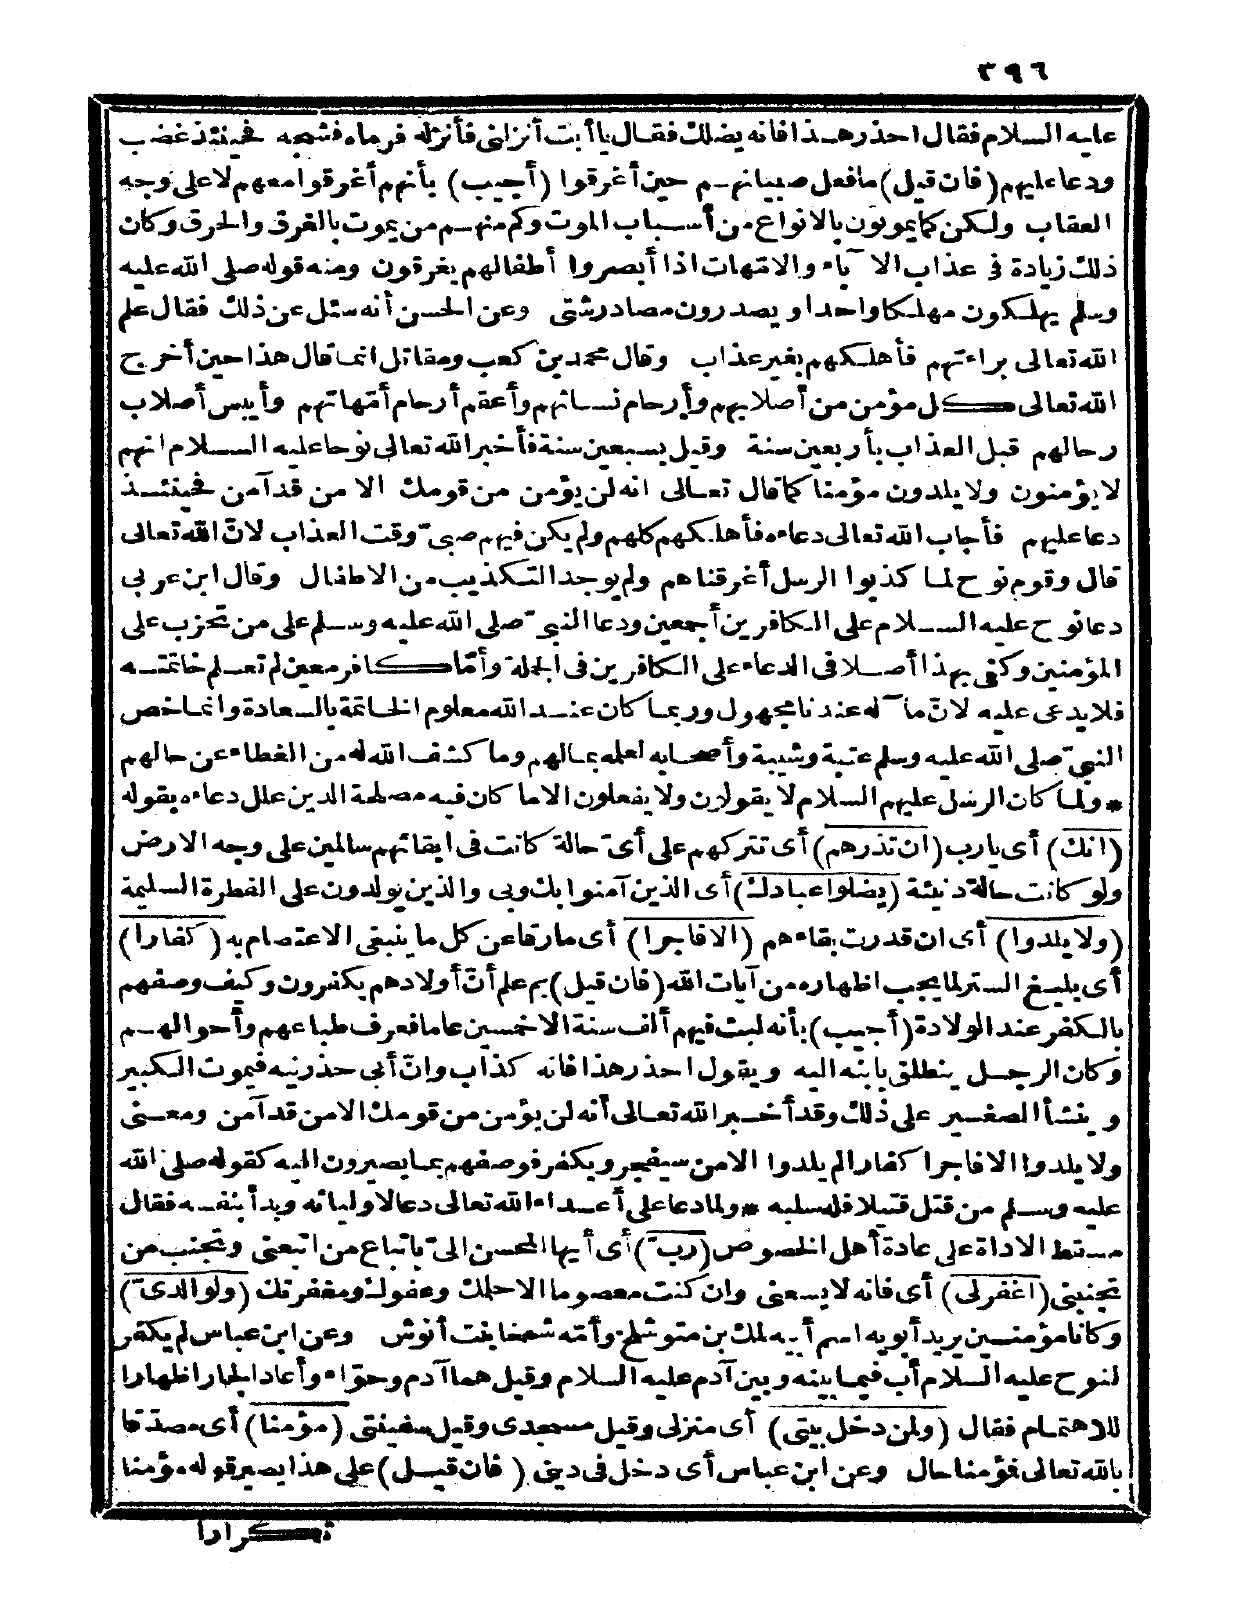 ٣٩٦
عليه السلام فقال احذر هذا فانه يضلك فقال يا أبت أنزلنى فأنزله فرماه فشجه فحينئذ غضب
ودعا عليهم (فان قيل) ما فعل صبيانهم حين أغرقوا (أجيب) بأنهم أغرقوا معهم لا على وجه
العقاب ولكن كما يموتون بالانواع من أسباب الموت وكم منهم من يموت بالغرق والحرق وكان
ذلك زيادة فى عذاب الآباء والامّهات اذا أبصروا أطفالهم يغرقون ومنه قوله صلى الله عليه
وسلم يهلكون مهلكا واحدا ويصدرون مصادر شتى وعن الحسن أنه سئل عن ذلك فقال علم
الله تعالى براءتهم فأهلكهم بغير عذاب وقال محمد بن كعب ومقاتل انما قال هذا حين أخرج
الله تعالى كل مؤمن من أصلابهم وأرحام نسائهم وأعقم أرحام أمّهاتهم وأيبس أصلاب
رجالهم قبل العذاب بأربعين سنة وقيل بسبعين سنة فأخبر الله تعالى نوحا عليه السلام انهم
لا يؤمنون ولا يلدون مؤمنا كما قال تعالى انه لن يؤمن من قومك الا من قد آمن فحينئذ
دعا عليهم فأجاب الله تعالى دعاءه فأهلكهم كلهم ولم يكن فيهم صبىّ وقت العذاب لانّ الله تعالى
قال وقوم نوح لما كذبوا الرسل أغرقناهم ولم يوجد التكذيب من الاطفال وقال ابن عربى
دعا نوح عليه السلام على الكافرين أجمعين ودعا النبىّ صلى الله عليه وسلم على من تحزب على
المؤمنين وكفى بهذا أصلا فى الدعاء على الكافرين فى الجملة وأمّا كافر معين لم تعلم خاتمته
فلا يدعى عليه لانّ مآله عندنا مجهول وربما كان عند الله معلوم الخاتمة بالسعادة وانما خص
النبىّ صلى الله عليه وسلم عتبة وشيبة وأصحابه لعلمه بمالهم وما كشف الله له من الغطاء عن حالهم
* ولما كان الرسل عليهم السلام لا يقولون ولا يفعلون الا ما كان فيه مصلحة الدين علل دعاءه بقوله
(انك) أى يا رب (ان تذرهم) أى تتركهم على أىّ حالة كانت فى ابقائهم سالمين على وجه الارض
ولو كانت حالة دنيئة (يضلوا عبادك) أى الذين آمنوا بك وبى والذين يولدون على الفطرة السليمة
(ولا يلدوا) أى ان قدرت بقاءهم (الا فاجرا) أى مارقا عن كل ما ينبغى الاعتصام به (كفارا)
أى بليغ الستر لما يجب اظهاره من آيات الله (فان قيل) بم علم أنّ أولادهم يكفرون وكيف وصفهم
بالكفر عند الولادة (أجيب) بأنه لبث فيهم ألف سنة الا خمسين عاما فعرف طباعهم وأحوالهم
وكان الرجل ينطلق بابنه اليه ويقول احذر هذا فانه كذاب وانّ أبى حذرنيه فيموت الكبير
وينشأ الصغير على ذلك وقد أخبر الله تعالى أنه لن يؤمن من قومك الا من قد آمن ومعنى
ولا يلدوا الا فاجرا كفارا لم يلدوا الا من سيفجر ويكفر فوصفهم بما يصيرون اليه كقوله صلى الله
عليه وسلم من قتل قتيلا فله سلبه * ولما دعا على أعداء الله تعالى دعا لاوليائه وبدأ بنفسه فقال
مسقط الاداة على عادة أهل الخصوص (ربّ) أى أيها المحسن الىّ باتباع من اتبعنى وتجنب من
تجنبنى (اغفر لى) أى فانه لا يسعنى وان كنت معصوما الا حلمك وعفوك ومغفرتك (ولوالدىّ)
وكانا مؤمنين يريد أبويه اسم أبيه لمك بن متوشلخ وأمّه شمخا بنت أنوش وعن ابن عباس لم يكفر
لنوح عليه السلام أب فيما بينه وبين آدم عليه السلام وقيل هما آدم وحوّاء وأعاد الجار اظهارا
للاهتمام فقال (ولمن دخل بيتى) أى منزلى وقيل مسجدى وقيل سفينتى (مؤمنا) أى مصدّقا
بالله تعالى فمؤمنا حال وعن ابن عباس أى دخل فى دينى (فان قيل) على هذا يصير قوله مؤمنا
تكرارا